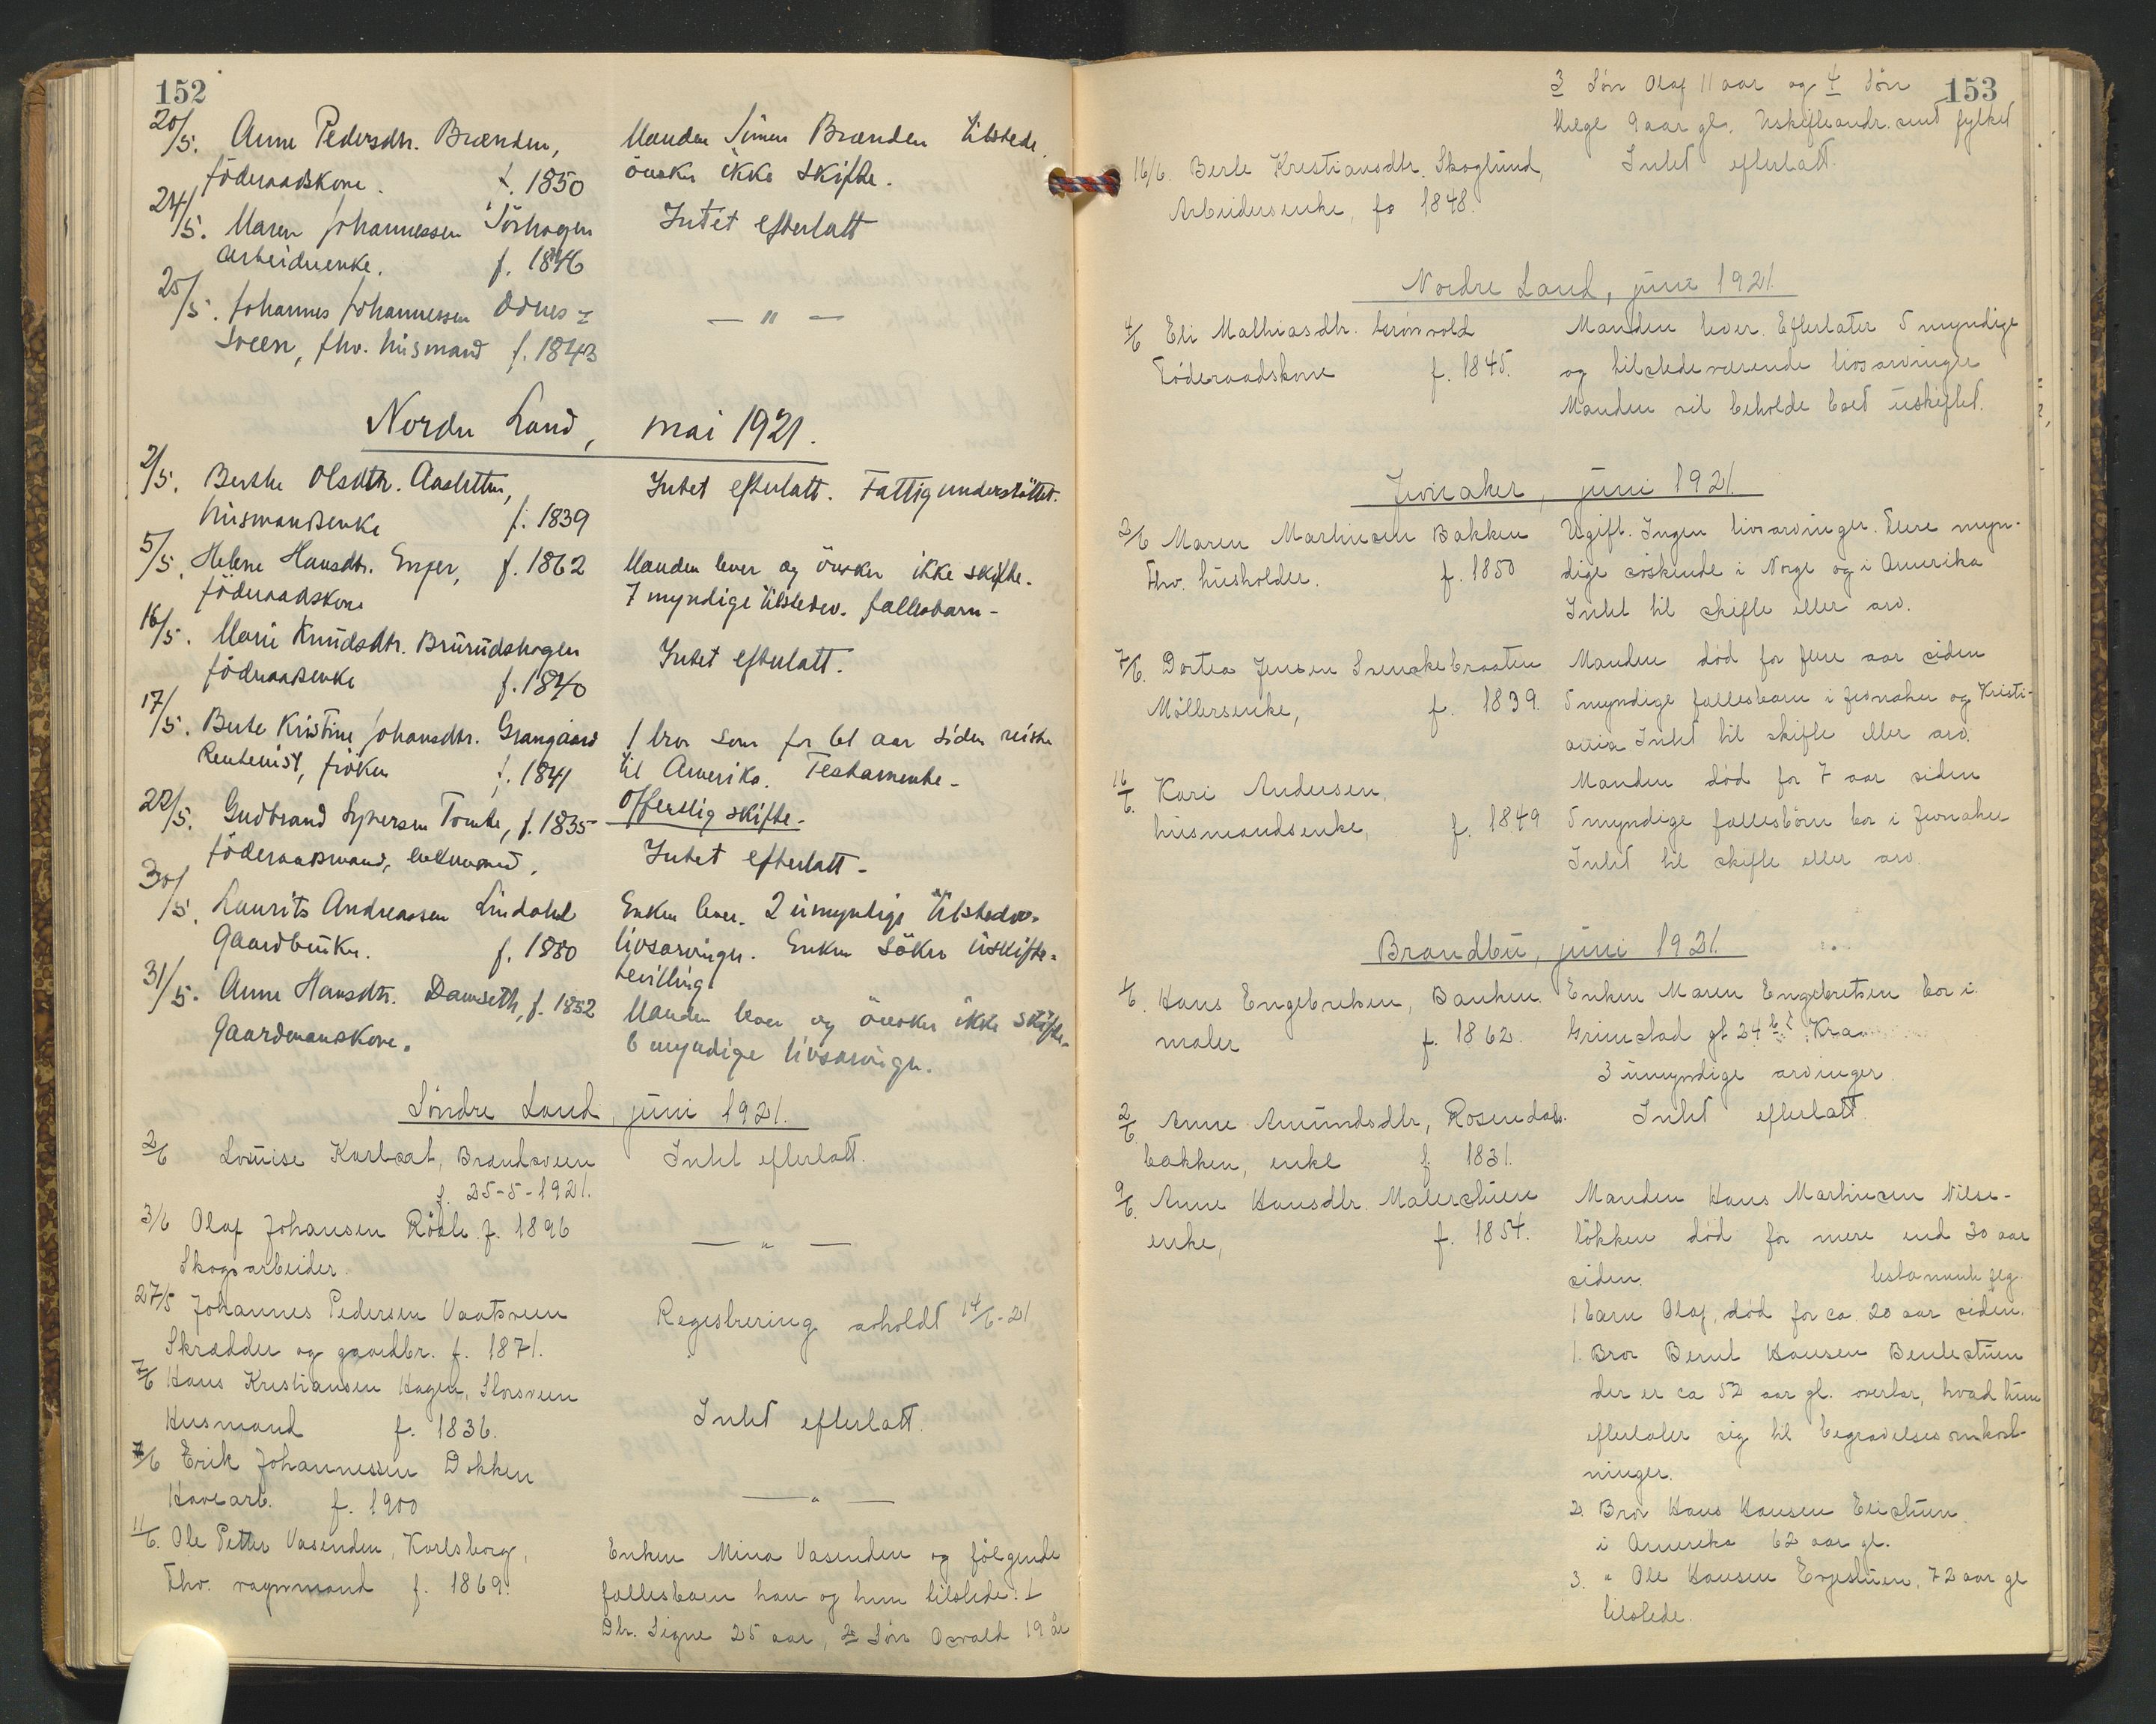 152
20/5. Anne Pedersdtr. Brænden, Manden Simen Brænden tilstede.
föderaadskone. f. 1850 önsker ikke skifte.
24/5. Maren Johannessen Törhagen Intet efterlatt
arbeiderenke. f. 1846
25/5. Johannes Johannessen Odnes- — " —
sveen, fhv. husmand f. 1843
Nordre Land, mai 1921.
2/5. Berthe Olsdtr. Aasletten, Intet efterlatt. Fattigunderstöttet.
husmandsenke f. 1839
5/5. Helene Hansdtr. Enger, f. 1862 Manden lever og önsker ikke skifte.
föderaadskone 7 myndige tilstedev. fællesbarn-
16/5. Marie Knudsdtr. Brurudshagen Intet efterlatt.
föderaadsenke f. 1840
17/5. Berte Kristine Johansdtr. Grangaard 1 bror som for 61 aar siden reiste
Rentenist, fröken f. 1841 til Amerika. Testamente-
22/5. Gudbrand Syversen Tomte, f. 1835 Offentlig skifte-
föderaadsmand, enkemand. Intet efterlatt-
30/5. Laurits Andreassen Lindahl Enken lever. 2 umyndige tilstedev.
Gaardbruker. f. 1880 livsarvinger. Enken söker uskifte-
bevilling
31/5. Anne Hansdtr. Damseth, f. 1852 Manden lever og önsker ikke skifte-
Gaardmanskone. 6 myndige livsarvinger.
Söndre Land, juni 1921.
2/6 Lovise Karlsat, Brandsveen Intet efterlatt.
f. 25-5-1921.
3/6 Olaf Johansen Rödle f. 1896 — " —
Skogsarbeider.
27/5 Johannes Pedersen Vaatsveen Registrering avholdt 14/6-21
Skrædder og gaardbr. f. 1871.
7/6 Hans Kristiansen Hagen, Storsveen
Husmand f. 1836. Intet efterlatt.
7/6 Erik Johannessen Dokken
Havearb. f. 1900 — " —
11/6. Ole Petter Vasenden, Karlsborg, Enken Mina Vasenden og fölgende
Fhv. vognmand f. 1869. fællesbarn han og hun tilstede: 1
Dtr. Signe 25 aar, 2 Sön Osvald 19 år
153
3 Sön Olaf 11 aar og 4 Sön
Helge 9 aar gl. Uskifteandr. sent fylket
16/6. Berte Kristiansdtr. Skoglund, Intet efterlatt.
Arbeidersenke, fø 1848.
Nordre Land, juni 1921
4/6 Eli Mathiasdtr. Grönvold Manden lever. Efterlater 5 myndige
Föderaadskone f. 1845. og tilstedeværende livsarvinger
Manden vil beholde boet uskiftet.
Jevnaker, juni 1921.
2/6 Maren Martinsen Bakken Ugift. Ingen livsarvinger. Flere myn-
Fhv. husholder. f. 1850 dige söskende i Norge og i Amerika
Intet til skifte eller arv.
7/6. Dortea Jensen Svenskebraaten Manden död for flere aar siden
Möllersenke, f. 1839. 5 myndige fællesbarn i Jevnaker og Kristi-
ania Intet til skifte eller arv.
16/6. Kari Andersen, Manden död for 7 aar siden
husmandsenke, f. 1849 5 myndige fællesbörn bor i Jevnaker
Intet til skifte eller arv.
Brandbu, juni 1921.
4/6 Hans Engebretsen, Banken. Enken Maren Engebretsen bor i
maler f. 1862. Grimstad gt 24 Kra
3 umyndige arvinger.
2/6 Anne Amundsdtr, Rosendals- Intet efterlatt.
bakken, enke f. 1831.
9/6. Anne Hansdtr. Malerstuen Manden Hans Martinsen Nilse-
enke, f. 1854. lökken död for mere end 30 aar
siden.
1 barn Olaf, död for ca. 20 aar siden.
1. Bror Bernt Hansen Bentestuen
der er ca 52 aar gl. overtar, hvad hun
efterlater sig til begravelsesomkost-
ninger.
2. Bror Hans Hansen Elistuen
i Amerika 62 aar gl.
3. " Ole Hansen Evjestuen, 72 aar gl
tilstede.